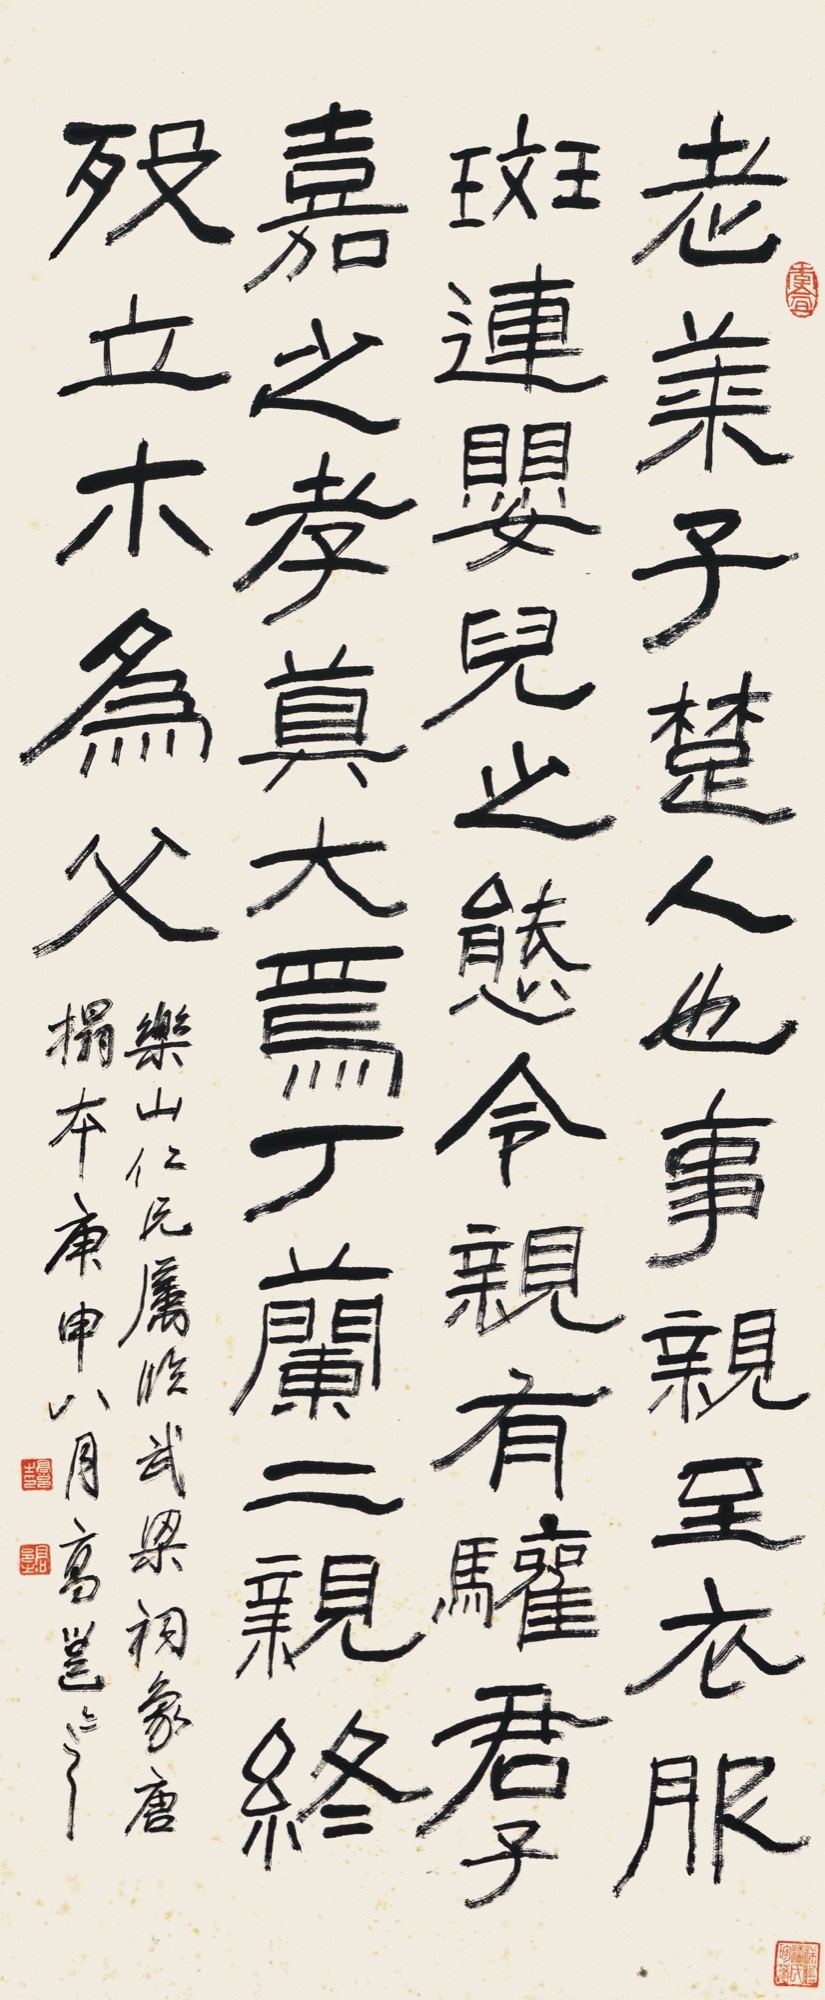 老萊子楚人也事親至衣服
斑連嬰兒之態令親有驩君子
嘉之孝莫大焉丁蘭二親終
歿立木為父
樂山仁兄屬臨武梁祠象唐
搨本庚申八月高邕